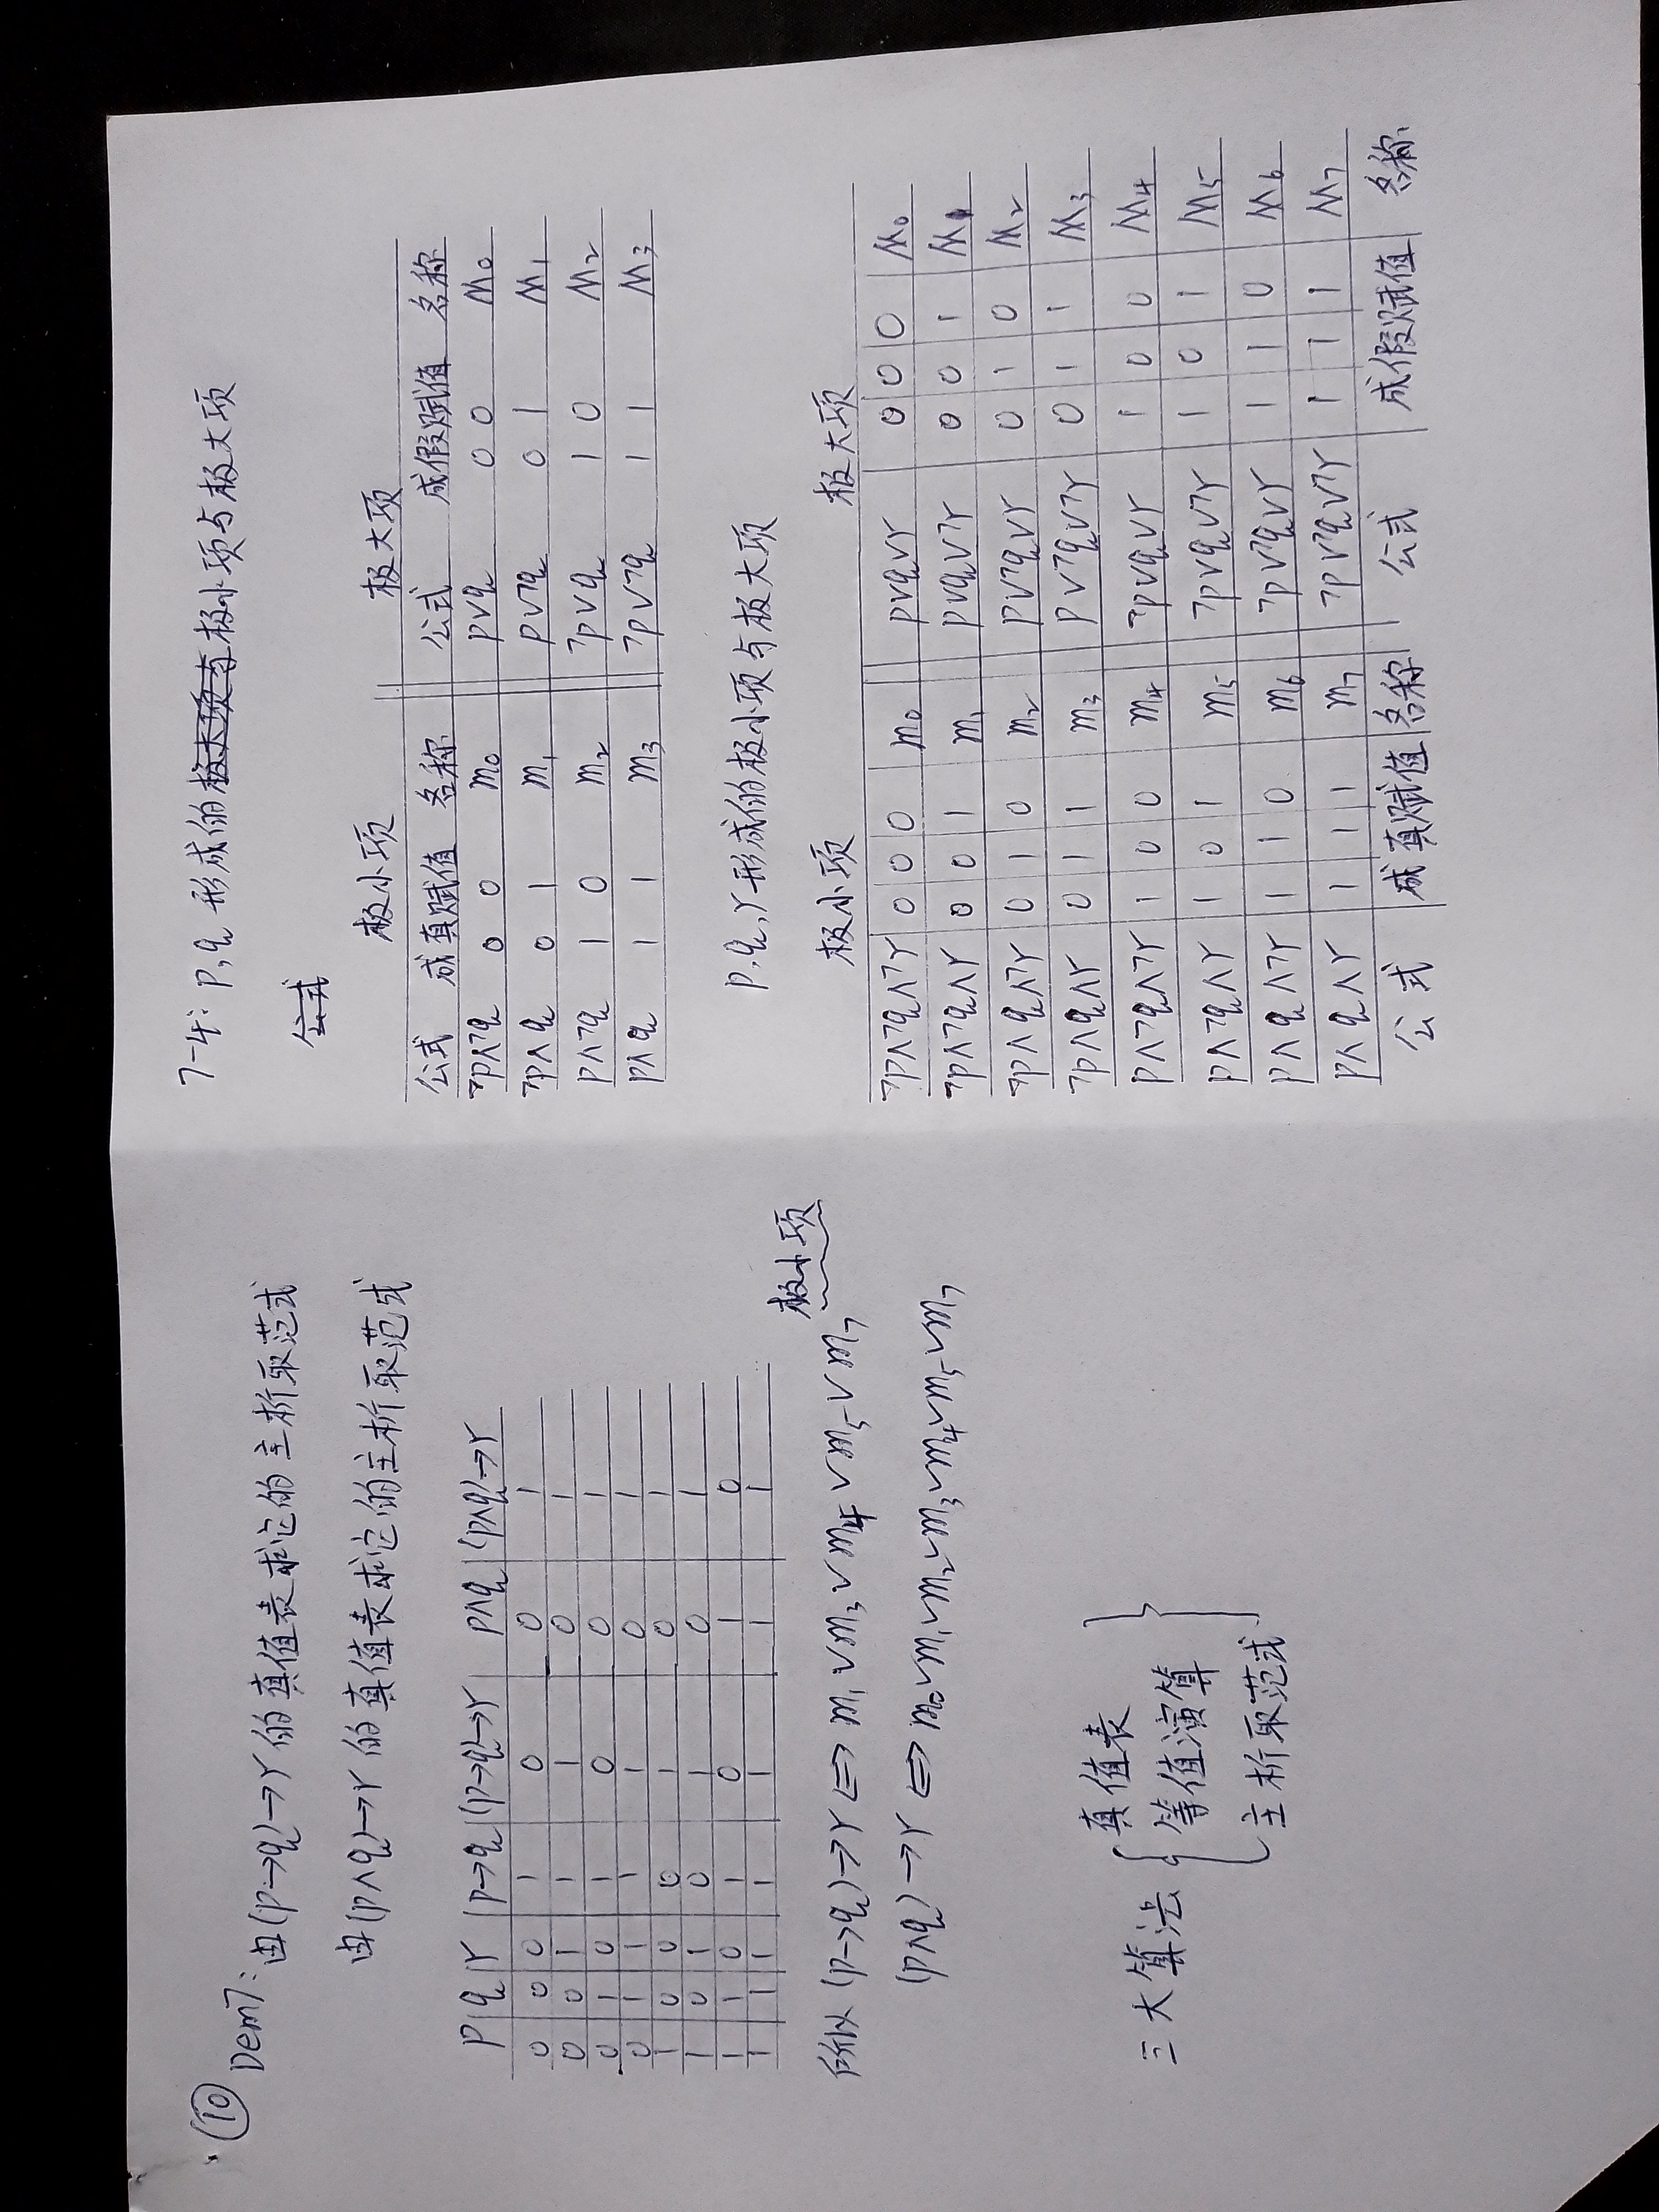 ⑩
Dem7: 由(p→q)→r 的真值表求它的主析取范式
由(p∧q)→r 的真值表求它的主析取范式
p q r p→q (p→q)→r p∧q (p∧q)→r
0 0 0 1 0 0 1
0 0 1 1 1 0 1
0 1 0 1 0 0 1
0 1 1 1 1 0 1
1 0 0 0 1 0 1
1 0 1 0 1 0 1
1 1 0 1 0 1 0
1 1 1 1 1 1 1
极小项
所以 (p→q)→r ⇔ m₁∨m₃∨m₄∨m₅∨m₇
(p∧q)→r ⇔ m₀∨m₁∨m₂∨m₃∨m₄∨m₅∨m₇
三大算法
真值表
等值演算
主析取范式
7-4: p,q 形成的极大项与极小项与极大项
公式
极小项 极大项
公式 成真赋值 名称 公式 成假赋值 名称
¬p∧¬q 0 0 m₀ p∨q 0 0 M₀
¬p∧q 0 1 m₁ p∨¬q 0 1 M₁
p∧¬q 1 0 m₂ ¬p∨q 1 0 M₂
p∧q 1 1 m₃ ¬p∨¬q 1 1 M₃
p,q,r形成的极小项与极大项
极小项 极大项
¬p∧¬q∧¬r 0 0 0 m₀ p∨q∨r 0 0 0 M₀
¬p∧¬q∧r 0 0 1 m₁ p∨q∨¬r 0 0 1 M₁
¬p∧q∧¬r 0 1 0 m₂ p∨¬q∨r 0 1 0 M₂
¬p∧q∧r 0 1 1 m₃ p∨¬q∨¬r 0 1 1 M₃
p∧¬q∧¬r 1 0 0 m₄ ¬p∨q∨r 1 0 0 M₄
p∧¬q∧r 1 0 1 m₅ ¬p∨q∨¬r 1 0 1 M₅
p∧q∧¬r 1 1 0 m₆ ¬p∨¬q∨r 1 1 0 M₆
p∧q∧r 1 1 1 m₇ ¬p∨¬q∨¬r 1 1 1 M₇
公式 成真赋值 名称 公式 成假赋值 名称